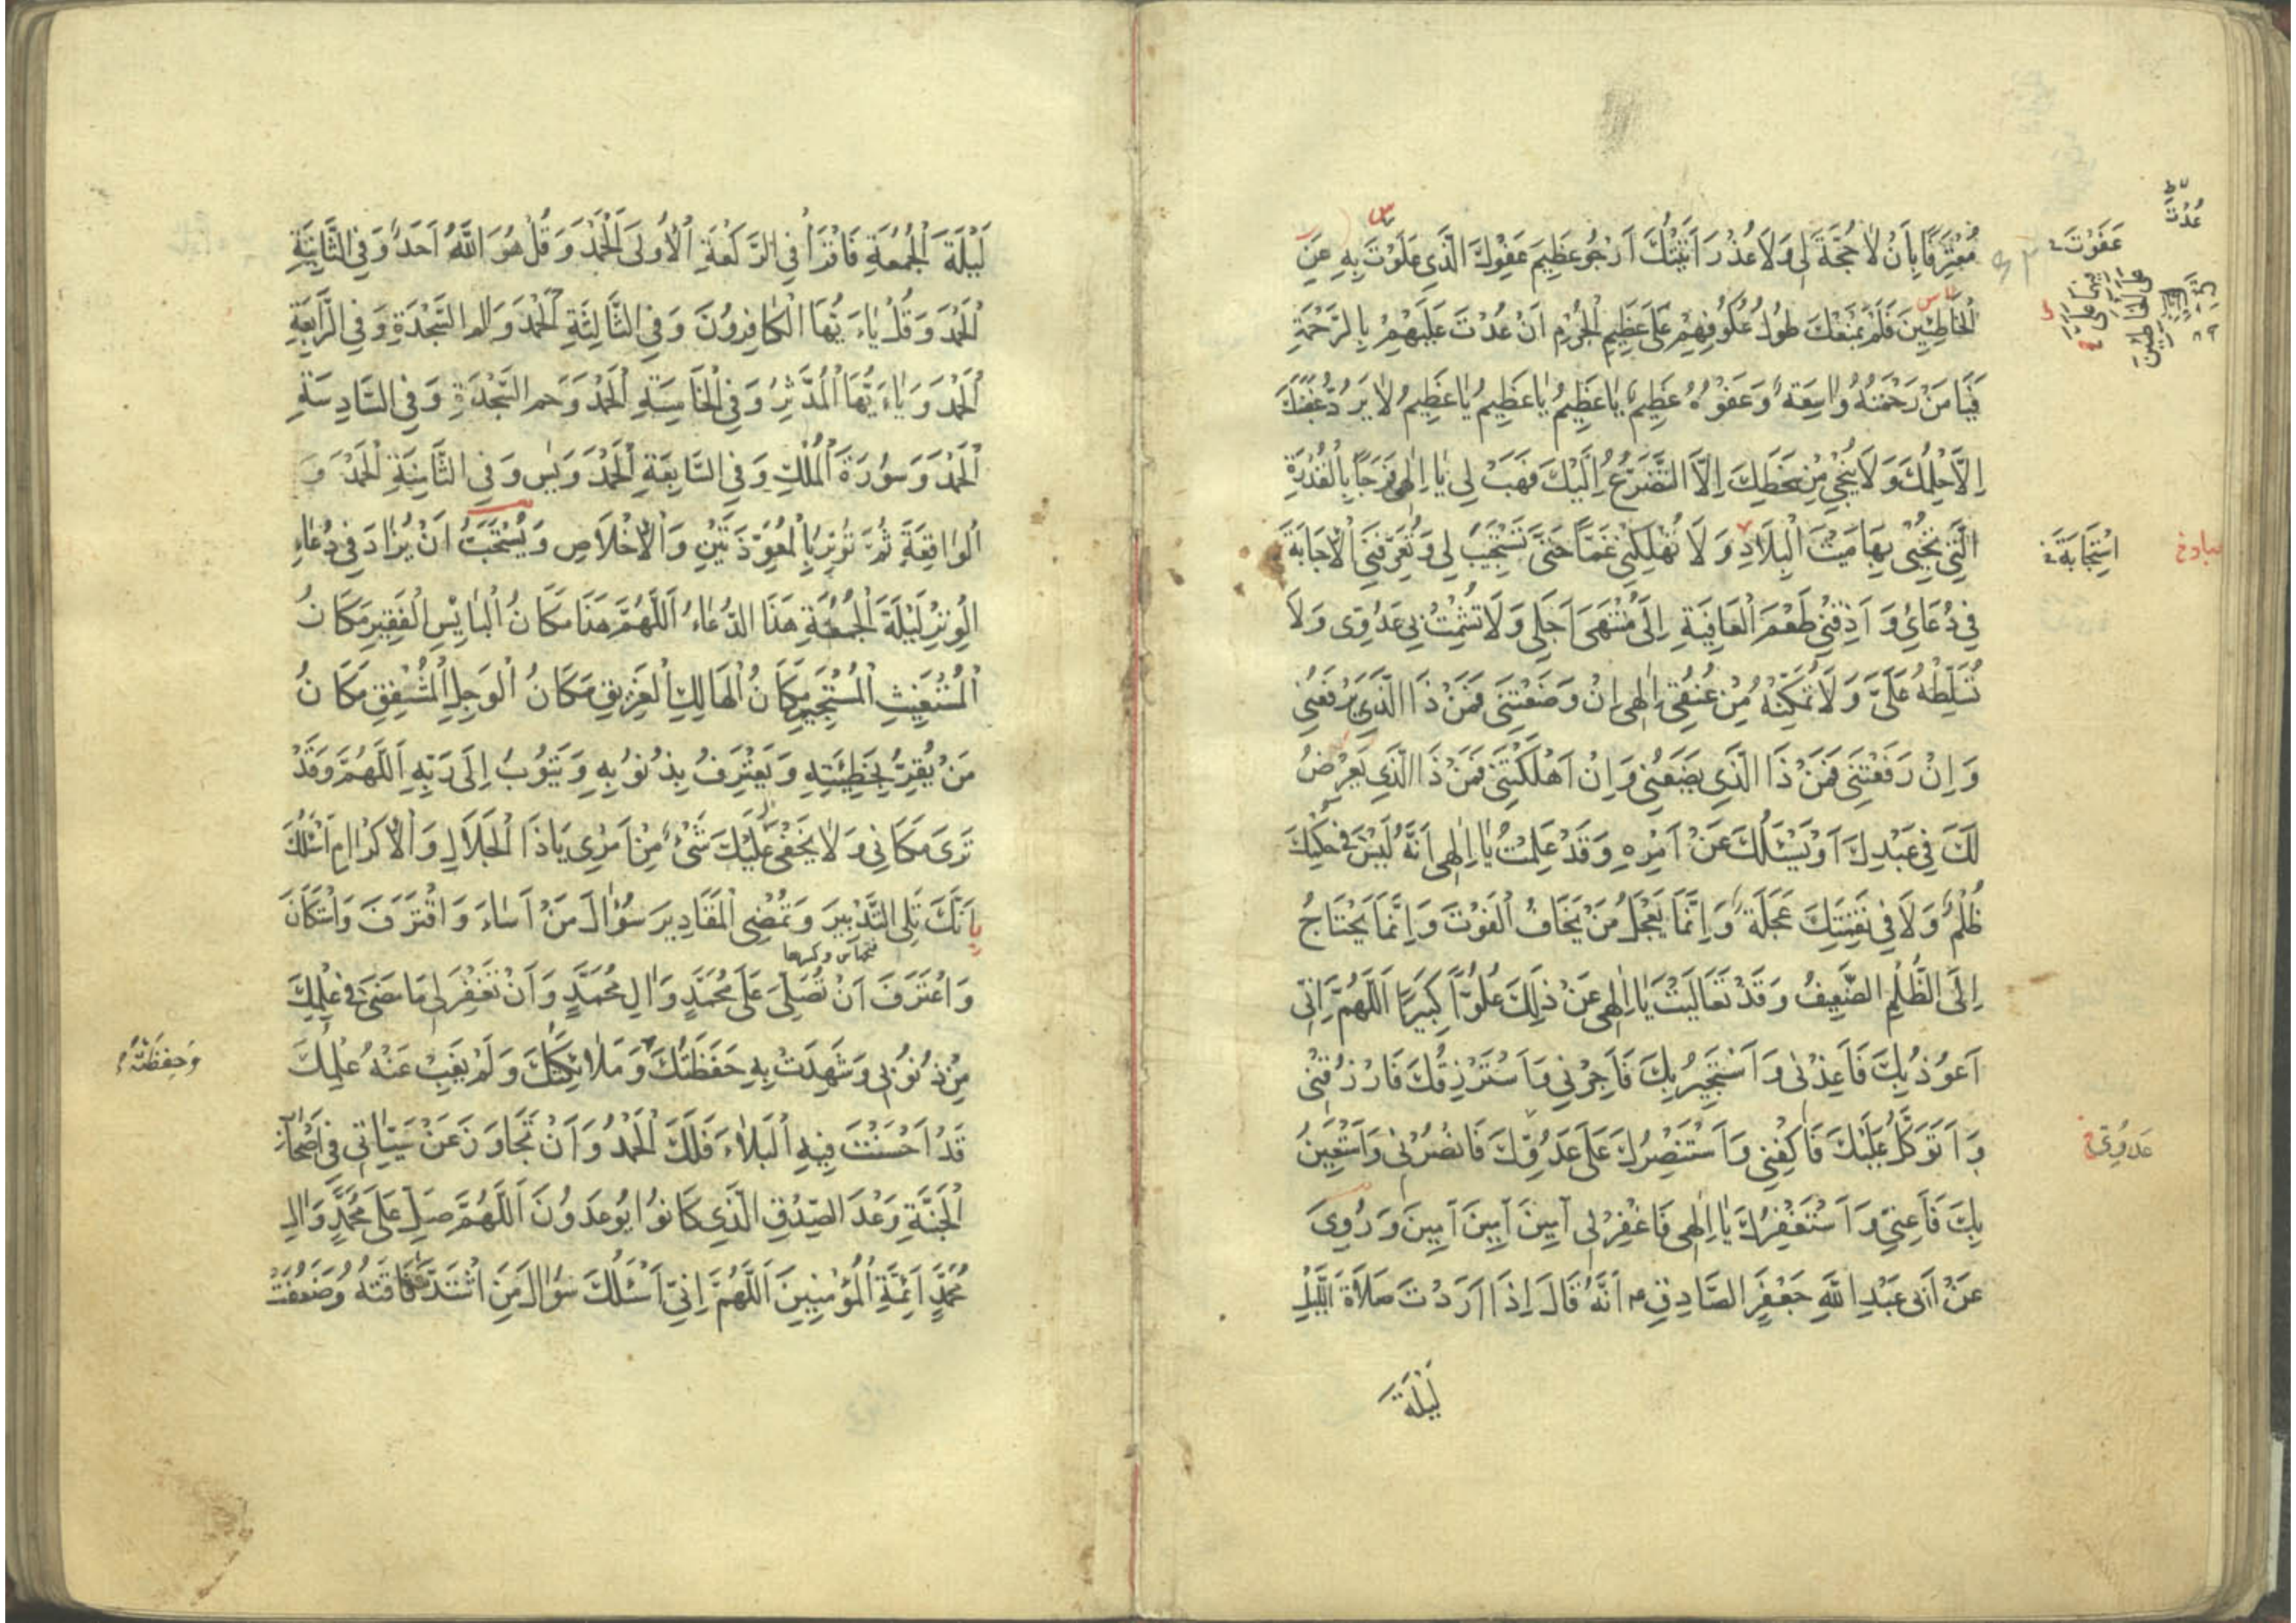 مُعْتَرِفًا بِاَنْ لَا حُجَّةَ لِي وَلَا عُذْرَ اَتَيْتُكَ اَرْجُو عَظِيمَ عَفْوِكَ الَّذِي عَلَوْتَ بِهِ عَنِ
الْخَاطِئِينَ فَلَمْ يَمْنَعْكَ طُولُ عُكُوفِهِمْ عَلَى عَظِيمِ الْجُرْمِ اَنْ عُدْتَ عَلَيْهِمْ بِالرَّحْمَةِ
فَيَا مَنْ رَحْمَتُهُ وَاسِعَةٌ وَعَفْوُهُ عَظِيمٌ يَا عَظِيمُ يَا عَظِيمُ يَا عَظِيمُ لَا يَرُدُّ غَضَبَكَ
اِلَّا حِلْمُكَ وَلَا يُنْجِي مِنْ سَخَطِكَ اِلَّا التَّضَرُّعُ اِلَيْكَ فَهَبْ لِي يَا اِلٰهِي فَرَجًا بِالْقُدْرَةِ
الَّتِي تُحْيِي بِهَا مَيْتَ الْبِلَادِ وَلَا تُهْلِكْنِي غَمًّا حَتَّى تَسْتَجِيبَ لِي وَتُعَرِّفَنِي الْاِجَابَةَ
فِي دُعَائِي وَاَذِقْنِي طَعْمَ الْعَافِيَةِ اِلَى مُنْتَهَى اَجَلِي وَلَا تُشْمِتْ بِي عَدُوِّي وَلَا
تُسَلِّطْهُ عَلَيَّ وَلَا تُمَكِّنْهُ مِنْ عُنُقِي اِلٰهِي اِنْ وَضَعْتَنِي فَمَنْ ذَا الَّذِي يَرْفَعُنِي
وَاِنْ رَفَعْتَنِي فَمَنْ ذَا الَّذِي يَضَعُنِي وَاِنْ اَهْلَكْتَنِي فَمَنْ ذَا الَّذِي يَعْرِضُ
لَكَ فِي عَبْدِكَ اَوْ يَسْئَلُكَ عَنْ اَمْرِهِ وَقَدْ عَلِمْتُ يَا اِلٰهِي اَنَّهُ لَيْسَ فِي حُكْمِكَ
ظُلْمٌ وَلَا فِي نَقِمَتِكَ عَجَلَةٌ وَاِنَّمَا يَعْجَلُ مَنْ يَخَافُ الْفَوْتَ وَاِنَّمَا يَحْتَاجُ
اِلَى الظُّلْمِ الضَّعِيفُ وَقَدْ تَعَالَيْتَ يَا اِلٰهِي عَنْ ذٰلِكَ عُلُوًّا كَبِيرًا اَللّٰهُمَّ اِنِّي
اَعُوذُ بِكَ فَاَعِذْنِي وَاَسْتَجِيرُ بِكَ فَاَجِرْنِي وَاَسْتَرْزِقُكَ فَارْزُقْنِي
وَاَتَوَكَّلُ عَلَيْكَ فَاكْفِنِي وَاَسْتَنْصِرُكَ عَلَى عَدُوِّكَ فَانْصُرْنِي وَاَسْتَعِينُ
بِكَ فَاَعِنِّي وَاَسْتَغْفِرُكَ يَا اِلٰهِي فَاغْفِرْ لِي آمِينَ آمِينَ آمِينَ وَرُوِيَ
عَنْ اَبِي عَبْدِ اللّٰهِ جَعْفَرٍ الصَّادِقِ ع اَنَّهُ قَالَ اِذَا اَرَدْتَ صَلَاةَ اللَّيْلِ
لَيْلَةَ
عُدْتَ
عَفَوْتَ
اسْتِجَابَةَ
عَدُوِّي
لَيْلَةَ الْجُمُعَةِ فَاقْرَأْ فِي الرَّكْعَةِ الْاُولَى الْحَمْدَ وَقُلْ هُوَ اللّٰهُ اَحَدٌ وَفِي الثَّانِيَةِ
الْحَمْدَ وَقُلْ يَاءَيُّهَا الْكَافِرُونَ وَفِي الثَّالِثَةِ الْحَمْدَ وَالم السَّجْدَةِ وَفِي الرَّابِعَةِ
الْحَمْدَ وَيَاءَيُّهَا الْمُدَّثِّرُ وَفِي الْخَامِسَةِ الْحَمْدَ وَحم السَّجْدَةِ وَفِي السَّادِسَةِ
الْحَمْدَ وَسُورَةَ الْمُلْكِ وَفِي السَّابِعَةِ الْحَمْدَ وَيٰس وَفِي الثَّامِنَةِ الْحَمْدَ وَ
الْوَاقِعَةِ ثُمَّ تُوتِرُ بِالْمُعَوِّذَتَيْنِ وَالْاِخْلَاصِ وَيُسْتَحَبُّ اَنْ يُزَادَ فِي دُعَاءِ
الْوِتْرِ لَيْلَةَ الْجُمُعَةِ هَذَا الدُّعَاءُ اَللّٰهُمَّ هَذَا مَكَانُ الْبَايِسِ الْفَقِيرِ مَكَانُ
الْمُسْتَغِيثِ الْمُسْتَجِيرِ مَكَانُ الْهَالِكِ الْغَرِيقِ مَكَانُ الْوَجِلِ الْمُشْفِقِ مَكَانُ
مَنْ يُقِرُّ بِخَطِيئَتِهِ وَيَعْتَرِفُ بِذُنُوبِهِ وَيَتُوبُ اِلَى رَبِّهِ اَللّٰهُمَّ وَقَدْ
تَرَى مَكَانِي وَلَا يَخْفَى عَلَيْكَ شَيْءٌ مِنْ اَمْرِي يَا ذَا الْجَلَالِ وَالْاِكْرَامِ اَسْئَلُكَ
بِاَنَّكَ تَلِي التَّدْبِيرَ وَتُمْضِي الْمَقَادِيرَ سُؤَالَ مَنْ اَسَاءَ وَاقْتَرَفَ وَاسْتَكَانَ
وَاعْتَرَفَ اَنْ تُصَلِّيَ عَلَى مُحَمَّدٍ وَآلِ مُحَمَّدٍ وَاَنْ تَغْفِرَ لِي مَا مَضَى فِي عِلْمِكَ
مِنْ ذُنُوبِي وَشَهِدَتْ بِهِ حَفَظَتُكَ وَمَلَائِكَتُكَ وَلَمْ يَغِبْ عَنْهُ عِلْمُكَ
قَدْ اَحْسَنْتَ فِيهِ الْبَلَاءَ فَلَكَ الْحَمْدُ وَاَنْ تَجَاوَزَ عَنْ سَيِّئَاتِي فِي اَصْحَابِ
الْجَنَّةِ وَعْدَ الصِّدْقِ الَّذِي كَانُوا يُوعَدُونَ اَللّٰهُمَّ صَلِّ عَلَى مُحَمَّدٍ وَآلِ
مُحَمَّدٍ اَئِمَّةِ الْمُؤْمِنِينَ اَللّٰهُمَّ اِنِّي اَسْئَلُكَ سُؤَالَ مَنِ اشْتَدَّتْ فَاقَتُهُ وَضَعُفَتْ
وَحَفَظَتُهُ